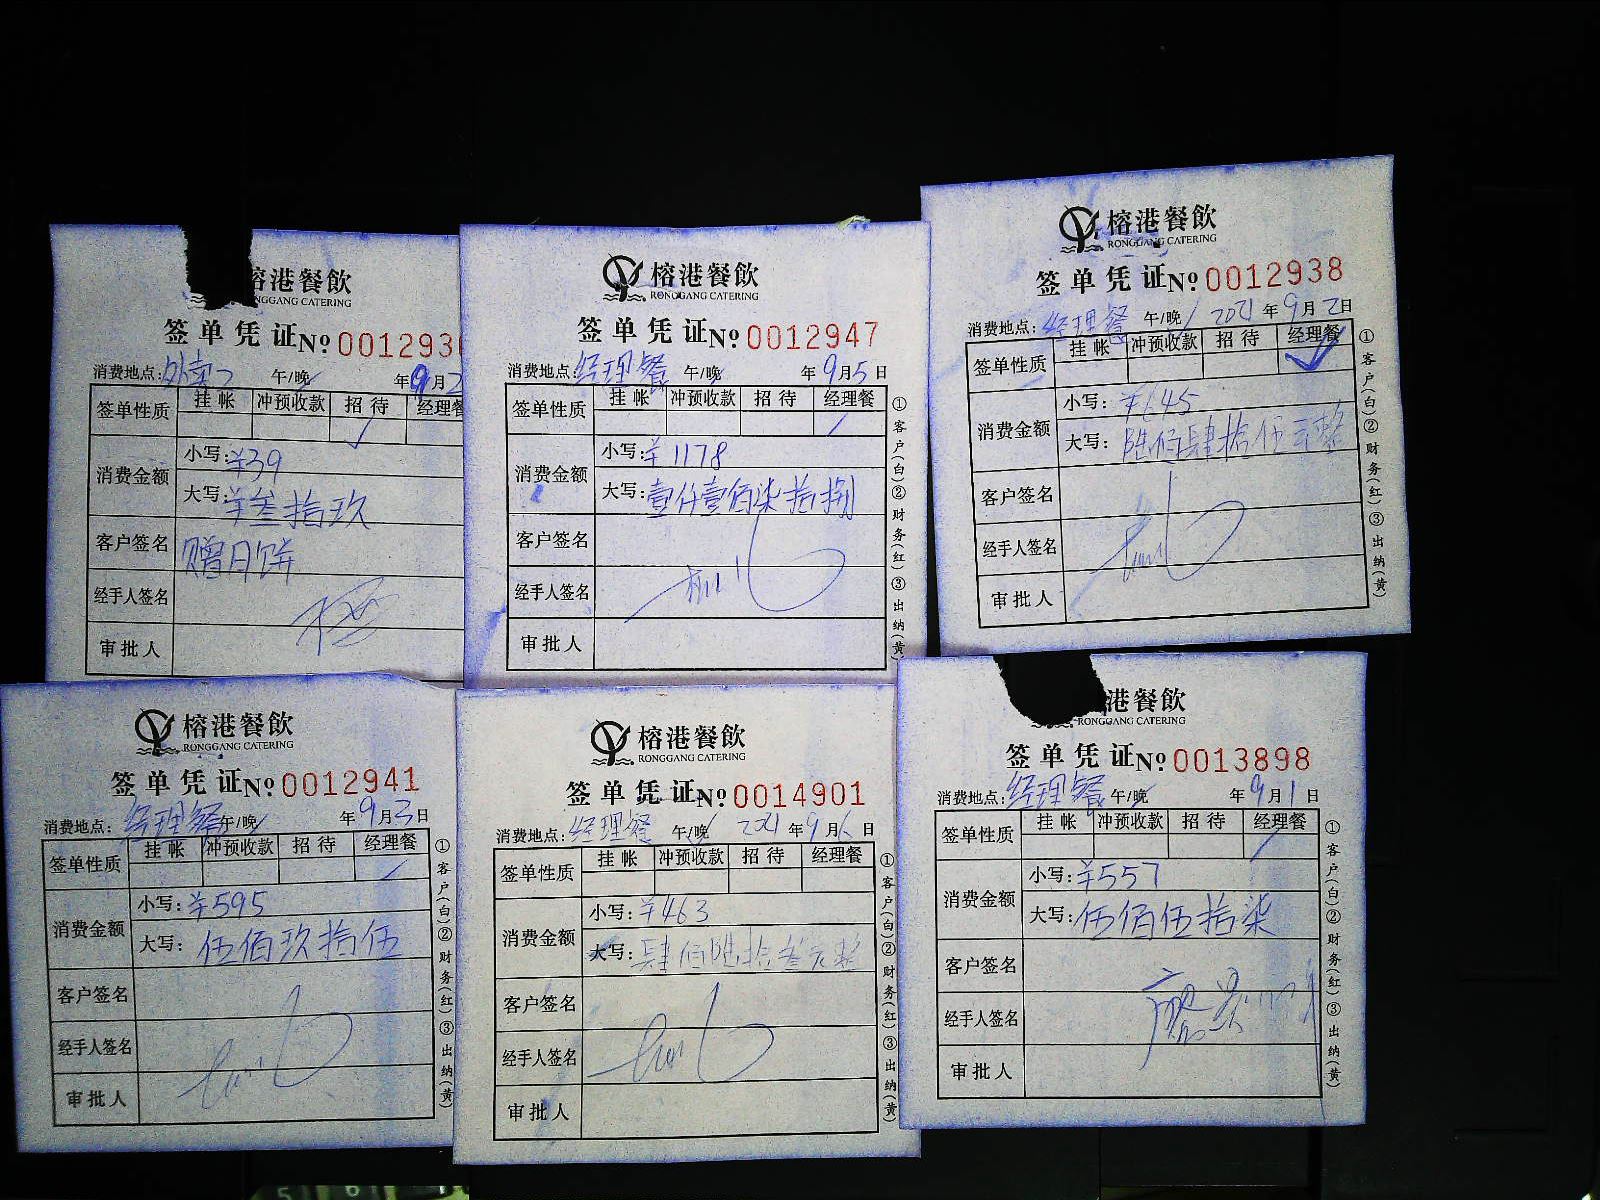 榕港餐飲
NGGANG CATERING
签单凭证 No 001293
消费地点: 外卖 午/晚 年9月2
签单性质 挂帐 冲预收款 招待 经理餐
✓
消费金额 小写: ¥39
大写: ¥叁拾玖
客户签名 赠月饼
经手人签名
审批人
榕港餐飲
RONGGANG CATERING
签单凭证 No 0012947
消费地点: 经理餐 午/晚 年9月5日
签单性质 挂帐 冲预收款 招待 经理餐
消费金额 小写: ¥1178
大写: 壹仟壹佰柒拾捌
客户签名
经手人签名
审批人
①客户(白)②财务(红)③出纳(黄)
榕港餐飲
RONGGANG CATERING
签单凭证 No 0012938
消费地点: 经理餐 午/晚 2021年9月2日
签单性质 挂帐 冲预收款 招待 经理餐
✓
消费金额 小写: ¥645
大写: 陆佰肆拾伍元整
客户签名
经手人签名
审批人
①客户(白)②财务(红)③出纳(黄)
榕港餐飲
RONGGANG CATERING
签单凭证 No 0012941
消费地点: 经理餐 午/晚 年9月3日
签单性质 挂帐 冲预收款 招待 经理餐
消费金额 小写: ¥595
大写: 伍佰玖拾伍
客户签名
经手人签名
审批人
①客户(白)②财务(红)③出纳(黄)
榕港餐飲
RONGGANG CATERING
签单凭证 No 0014901
消费地点: 经理餐 午/晚 2021年9月 日
签单性质 挂帐 冲预收款 招待 经理餐
消费金额 小写: ¥463
大写: 肆佰陆拾叁元整
客户签名
经手人签名
审批人
①客户(白)②财务(红)③出纳(黄)
港餐飲
RONGGANG CATERING
签单凭证 No 0013898
消费地点: 经理餐 午/晚 年9月1日
签单性质 挂帐 冲预收款 招待 经理餐
消费金额 小写: ¥557
大写: 伍佰伍拾柒
客户签名
经手人签名
审批人
①客户(白)②财务(红)③出纳(黄)